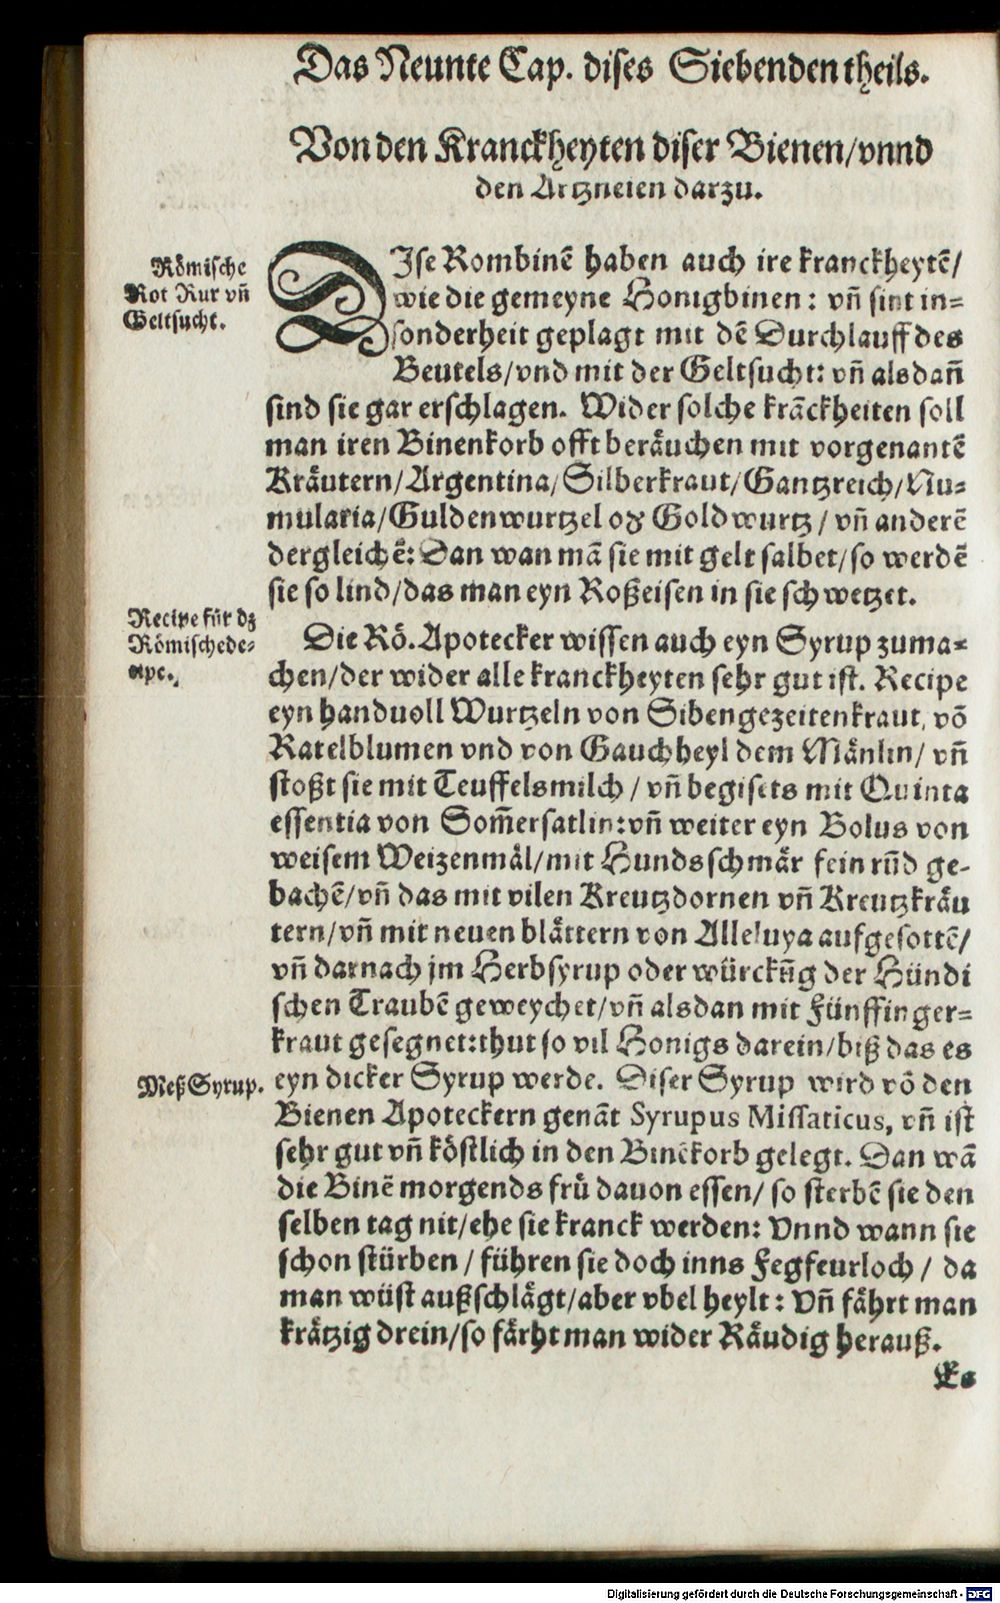 Das Neunte Cap. dises Siebendentheils.
Von den Kranckheyten diser Bienen/vnnd
den Artzneien darzu.
Römische
Rot Rur vñ
Geltsucht.
DIse Rombinẽ haben auch ire kranckheytẽ/
wie die gemeyne Honigbinen: vñ sint in=
sonderheit geplagt mit dẽ Durchlauff des
Beutels/vnd mit der Geltsucht: vñ alsdañ
sind sie gar erschlagen. Wider solche krãckheiten soll
man iren Binenkorb offt beräuchen mit vorgenantẽ
Kräutern/Argentina/Silberkraut/Gantzreich/Nu=
mularia/Guldenwurtzel oď Goldwurtz/vñ anderẽ
dergleichẽ: Dan wan mã sie mit gelt salbet/so werdẽ
sie so lind/das man eyn Roßeisen in sie schwetzet.
Recipe für dz
Römischede=
ape.
Die Rö. Apotecker wissen auch eyn Syrup zuma=
chen/der wider alle kranckheyten sehr gut ist. Recipe
eyn handuoll Wurtzeln von Sibengezeitenkraut, võ
Ratelblumen vnd von Gauchheyl dem Mänlin/ vñ
stoßt sie mit Teuffelsmilch/ vñ begisets mit Quinta
essentia von Som̃ersatlin: vñ weiter eyn Bolus von
weisem Weizenmäl/mit Hundsschmär fein rũd ge-
bachẽ/vñ das mit vilen Kreutzdornen vñ Kreutzkräu
tern/vñ mit neuen blättern von Alleluya aufgesottẽ/
vñ darnach jm Herbsyrup oder würckñg der Hündi
schen Traubẽ geweychet/vñ alsdan mit Fünffinger=
kraut gesegnet: thut so vil Honigs darein/biß das es
Meß Syrup.
eyn dicker Syrup werde. Diser Syrup wird võ den
Bienen Apoteckern genãt Syrupus Missaticus, vñ ist
sehr gut vñ köstlich in den Binẽkorb gelegt. Dan wã
die Binẽ morgends frü dauon essen/ so sterbẽ sie den
selben tag nit/ehe sie kranck werden: Vnnd wann sie
schon stürben/ führen sie doch inns Fegfeurloch/ da
man wüst außschlägt/aber vbel heylt: Vñ fährt man
krätzig drein/so färht man wider Räudig herauß.
Es
Digitalisierung gefördert durch die Deutsche Forschungsgemeinschaft - DFG